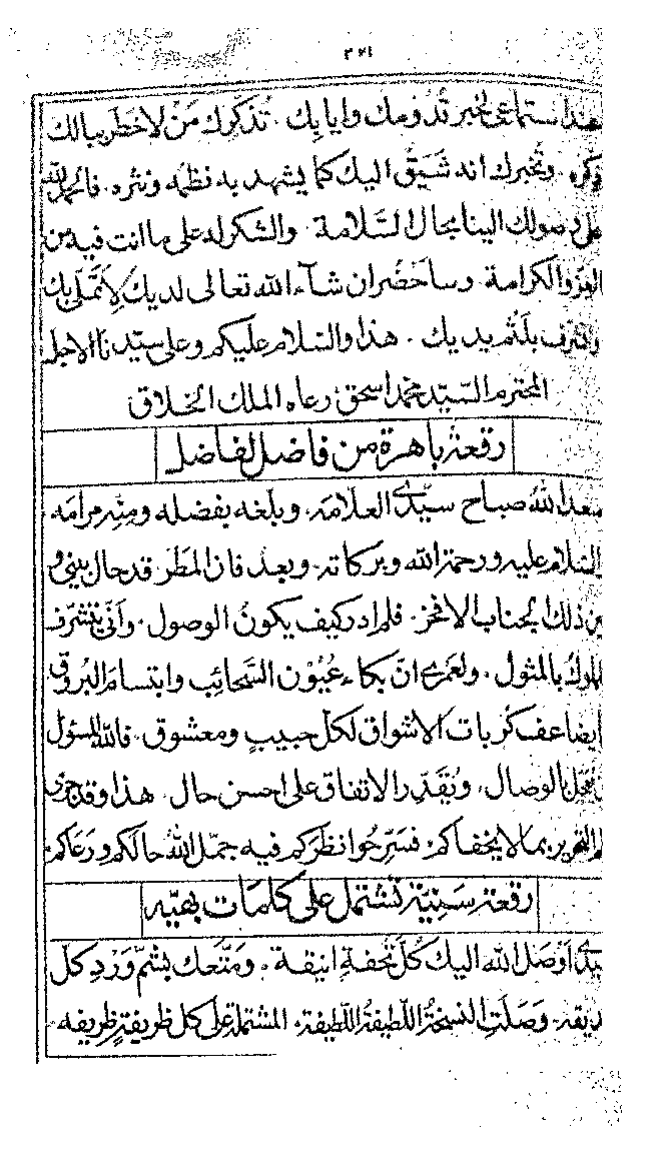 ٣٤١
هذا استماعي لخبر قُدُومك وايابك . تُذكّرك مَنْ لاخطر ببالك
وتُخبرك انه شَيِّقٌ اليك كما يشهد به نظمُه ونثره . فالحمد لله
على وصولك الينا بحال السَّلامة . والشكر له على ما انت فيه من
العز والكرامة . وساحضُر ان شآء الله تعالى لديك لِأتمَلّى بك
بلَثْم يديك . هذا والسلام عليكم وعلى سيّدنا الاجل
المحترم السّيّد محمد اسحق رعاه الملك الخلاق
رقعة باهرة من فاضل لفاضل
اسعد الله صباح سيّدى العلامه . وبلغه بفضله ومنّه مرامه .
والسلام عليه ورحمة الله وبركاته . وبعد فان المَطَر قد حال بيني و
بين ذلك الجناب الافخر . فلم ادر كيف يكونُ الوصول . وأنّى يتشرّف
المملوك بالمثول . ولعمرى انّ بكاء عُيُون السَّحائِب وابتسامَ البُروق
ايضاعف كربات الاشواق لكل حبيبٍ ومعشوق . فالله المسؤل
بالوصال . ويُقَدّر الاتفاق على احسن حال . هذا وقد جرى
التحرير بما لا يخفاكم . فسَرِّحُوا نظركم فيه جمّل اللهُ حالكم ورَعَاكم
رقعة سَنِيّة تشتمل على كلمات بهيّه
سيدى اَوْصَل الله اليك كُلَّ تُحفةٍ انيقة . ومَتَّعك بشَمّ وَرْدِ كل
حديقه . وَصَلَتِ النسخةُ اللّطيفةُ اللّطيفة . المشتملة على كل ظريفةٍ ظريفه .